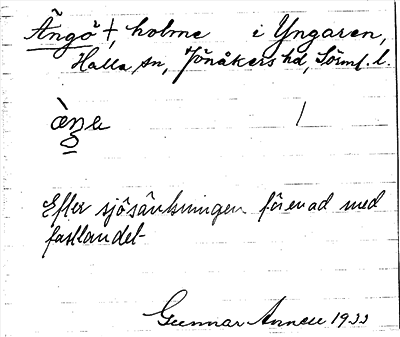 Ängö †, holme i Yngaren,
Halla sn, Jönåkers hd, Sörml. l.
Efter sjösänkningen förenad med
fastlandet
Gunnar 1933